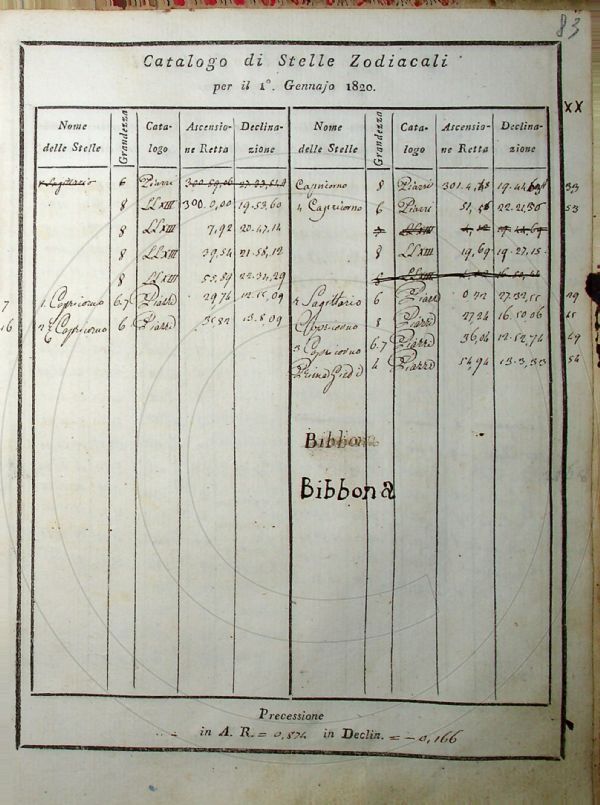 83
Catalogo di Stelle Zodiacali
per il 1°. Gennajo 1820.
XX
Nome delle Stelle Grandezza Cata-logo Ascensio-ne Retta Declina-zione Nome delle Stelle Grandezza Cata-logo Ascensio-ne Retta Declina-zione
Sagittario 6 Piazzi Capricorno 8 Piazzi 33
8 LLXIII 300.0,00 19.53,60 4 Capricorno 6 Piazzi 53
8 LLXIII 7,92 20.47,14
8 LLXIII 39,54 21.58,12 8 LLXIII 19,69 19.27,15
8 LLXIII 55,89 22.34,29
7 1 Capricorno 6.7 Piazzi 29,74 4 Sagittario 6 Piazzi 0,42
16 2 Capricorno 6 Piazzi Capricorno 8 Piazzi 27,24 16.50,06
3 Capricorno 6.7 Piazzi 36,04 12.52,74 49
4 Piazzi 54,94 13.3,33 54
Bibbona
Bibbona
Precessione
in A. R. = 0,874 in Declin. = -0,166